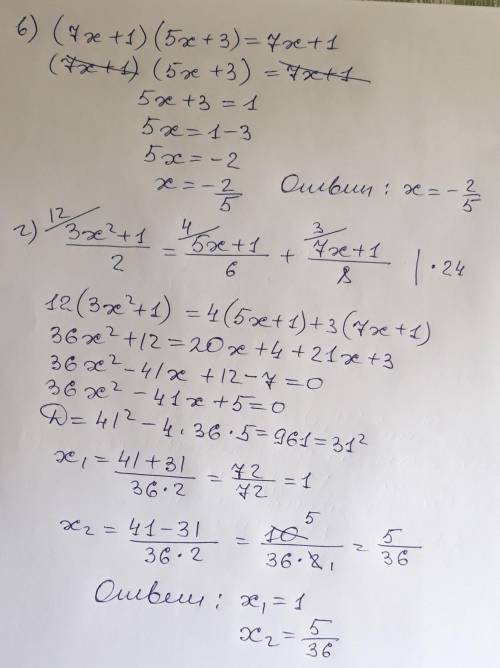 в) (7x+1)(5x+3)=7x+1
(7x+1) (5x+3) = 7x+1
5x+3=1
5x=1-3
5x=-2
x=-2/5 Ответ: x=-2/5
г) 12/ (3x²+1)/2 = 4/ (5x+1)/6 + 3/ (7x+1)/8 | ·24
12(3x²+1)=4(5x+1)+3(7x+1)
36x²+12=20x+4+21x+3
36x²-41x+12-7=0
36x²-41x+5=0
D=41²-4·36·5=961=31²
x₁=(41+31)/(36·2)=72/72=1
x₂=(41-31)/(36·2)=10 5/(36·2 1)=5/36
Ответ: x₁=1
x₂=5/36